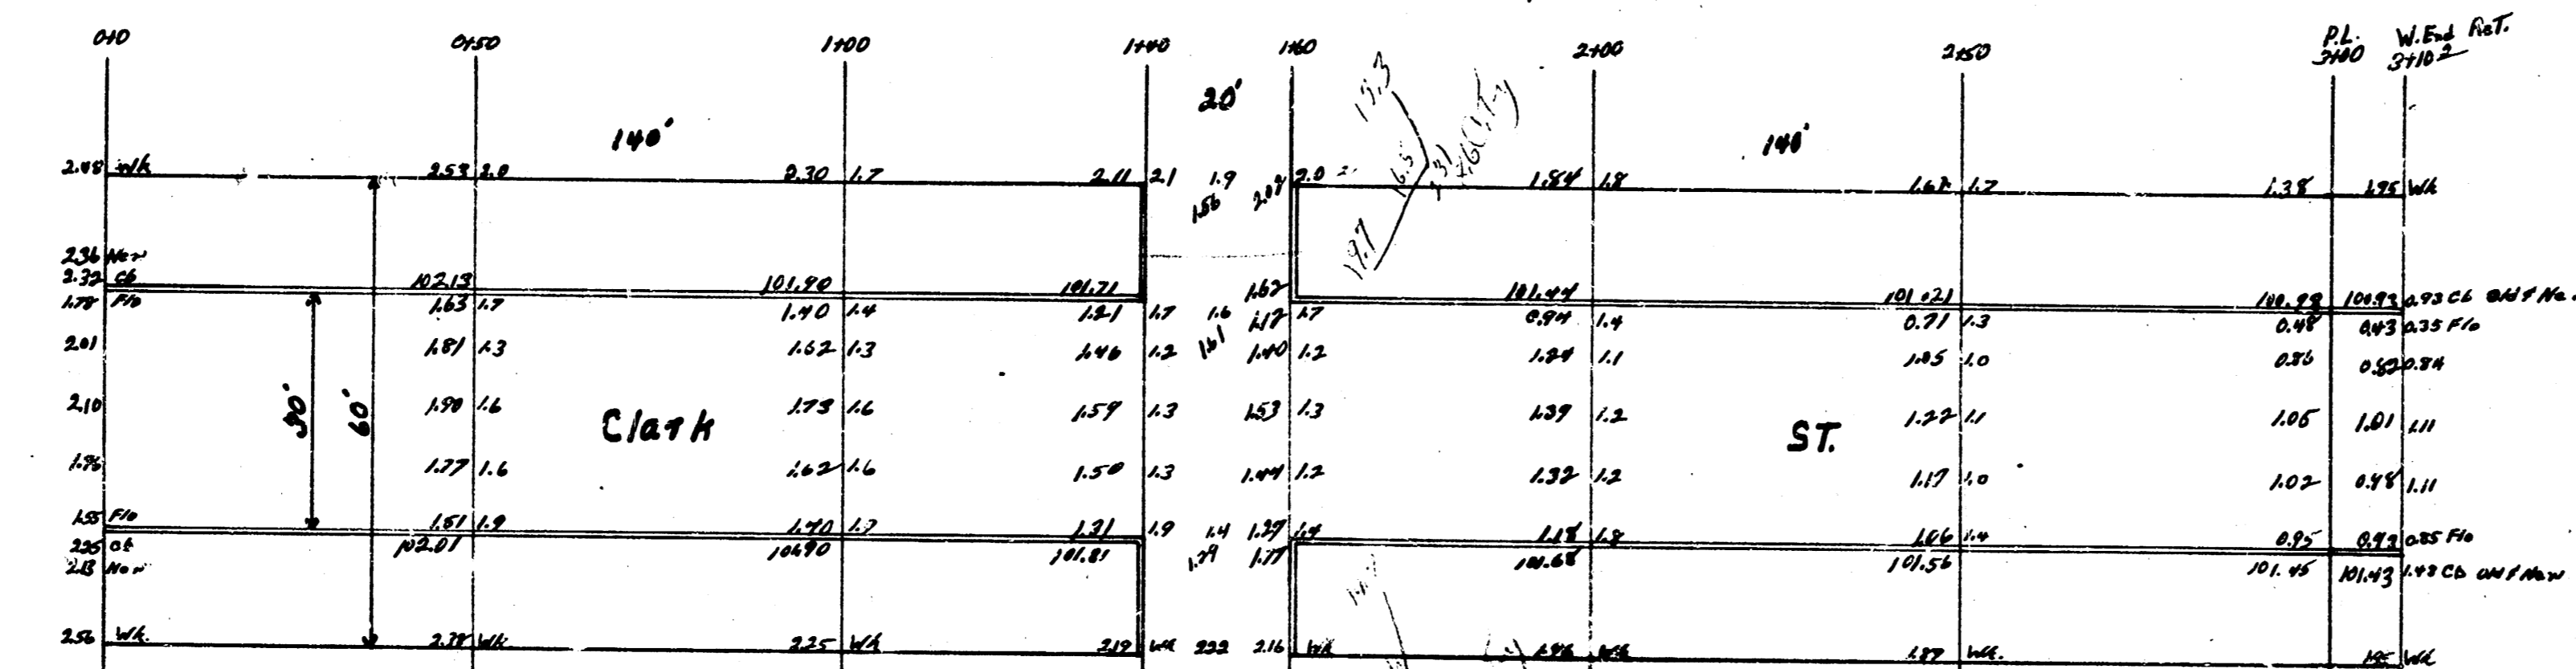 0+0 0+50 1+00 1+40 1+60 2+00 2+50 P.L. W.End Ret.
3+00 3+10 2
20'
140' 140'
2.48 Wk 2.53 2.0 2.30 1.7 2.11 2.1 1.9 2.0 1.84 1.8 1.7 1.38 Wk
1.56
2.36 New
2.32 Cb 102.13 101.90 101.71 1.62 101.44 101.21 100.98 100.93 0.93 Cb Old & Ne
1.78 Flo 1.63 1.7 1.40 1.4 1.21 1.7 1.6 1.12 1.7 0.94 1.4 0.71 1.3 0.48 0.43 0.35 Flo
2.01 1.81 1.3 1.62 1.3 1.46 1.2 1.61 1.40 1.2 1.24 1.1 1.05 1.0 0.86 0.82 0.84
2.10 1.90 1.6 1.73 1.6 1.59 1.3 1.53 1.3 1.39 1.2 1.22 1.1 1.05 1.01 1.11
30' 60' Clark ST.
1.96 1.77 1.6 1.62 1.6 1.50 1.3 1.44 1.2 1.32 1.2 1.17 1.0 1.02 0.98 1.11
1.55 Flo 1.51 1.9 1.40 1.31 1.9 1.4 1.27 1.4 1.18 1.8 1.06 1.4 0.95 0.93 0.85 Flo
Cb 102.01 101.90 101.81 1.77 101.68 101.56 101.45 101.43 1.48 Cb Old & New
2.13 New
2.56 Wk. 2.38 Wk. 2.25 Wk 2.19 Wk 2.22 2.16 Wk Wk Wk. Wk